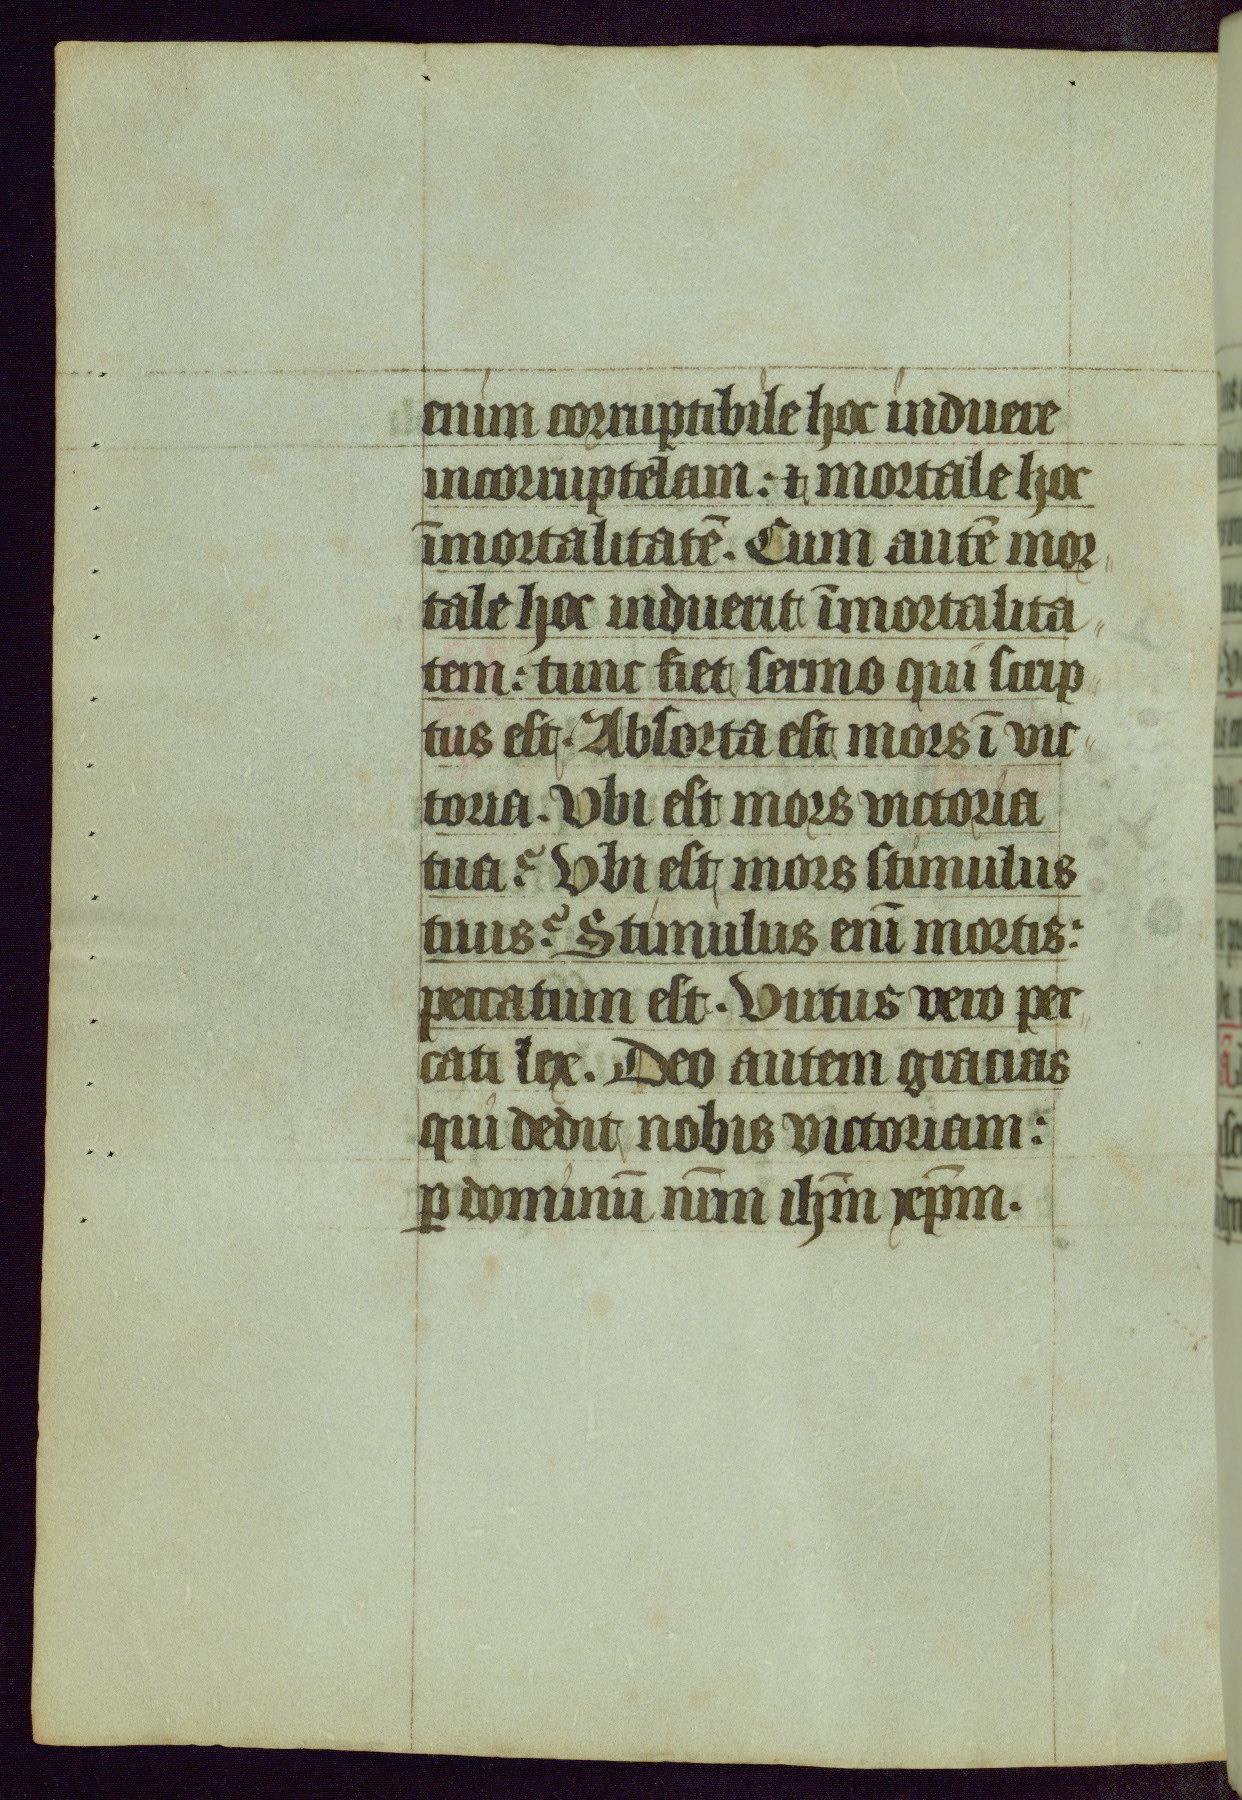 enim corruptibile hoc induere
incorruptelam: ⁊ mortale hoc
īmortalitatē. Cum autē mor〃
tale hoc induerit īmortalita〃
tem: tunc fiet sermo qui scrip〃
tus est. Absorta est mors ī vic〃
toria. Vbi est mors victoria
tua? Vbi est mors stimulus
tuus? Stimulus enī mortis:
peccatum est. Virtus vero pec〃
cati lex. Deo autem gracias
qui dedit nobis victoriam:
ꝑ dominū nr̄m ihm̄ xp̄m.